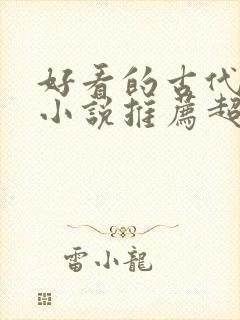 好看的古代
小说推荐超
雷小龍